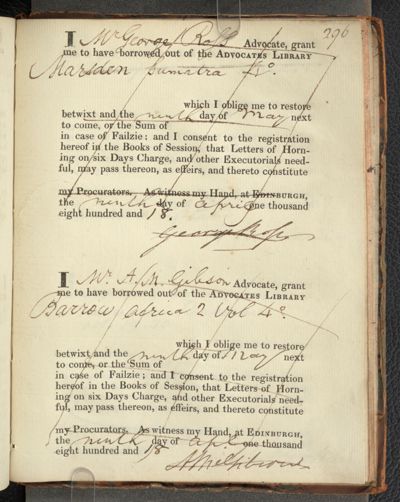 296
I Mr George Ross Advocate, grant
me to have borrowed out of the ADVOCATES LIBRARY
Marsden Sumatra 4o.
which I oblige me to restore
betwixt and the ninth day of May next
to come, or the Sum of
in case of Failzie; and I consent to the registration
hereof in the Books of Session, that Letters of Horn-
ing on six Days Charge, and other Executorials need-
ful, may pass thereon, as effeirs, and thereto constitute
my Procurators. As witness my Hand, at EDINBURGH,
the ninth day of April one thousand
eight hundred and 18.
George Ross
I Mr. A. M. Gibson Advocate, grant
me to have borrowed out of the ADVOCATES LIBRARY
Barrow Africa 2 Vol 4o.
which I oblige me to restore
betwixt and the ninth day of May next
to come, or the Sum of
in case of Failzie; and I consent to the registration
hereof in the Books of Session, that Letters of Horn-
ing on six Days Charge, and other Executorials need-
ful, may pass thereon, as effeirs, and thereto constitute
my Procurators. As witness my Hand, at EDINBURGH,
the ninth day of Apl. one thousand
eight hundred and 18
A M Gibson